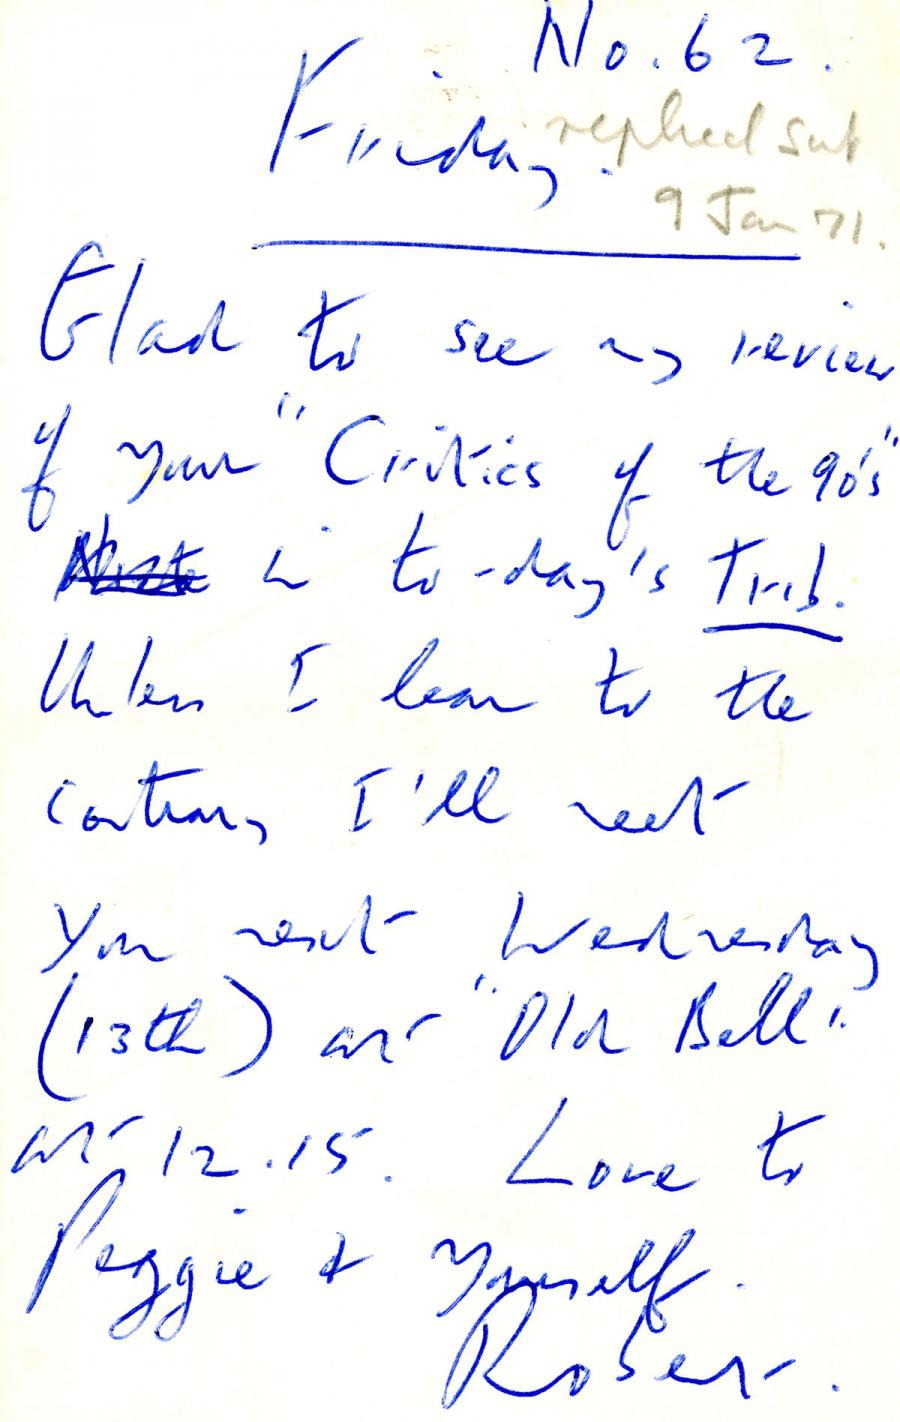 No. 62.
Friday.
replied Sat
9 Jan 71.
Glad to see my review
of your "Critics of the 90's"
in to-day's Trib.
Unless I hear to the
contrary I'll meet
you next Wednesday
(13th) at "Old Bell".
at 12.15. Love to
Peggie & Yourself.
Robert.